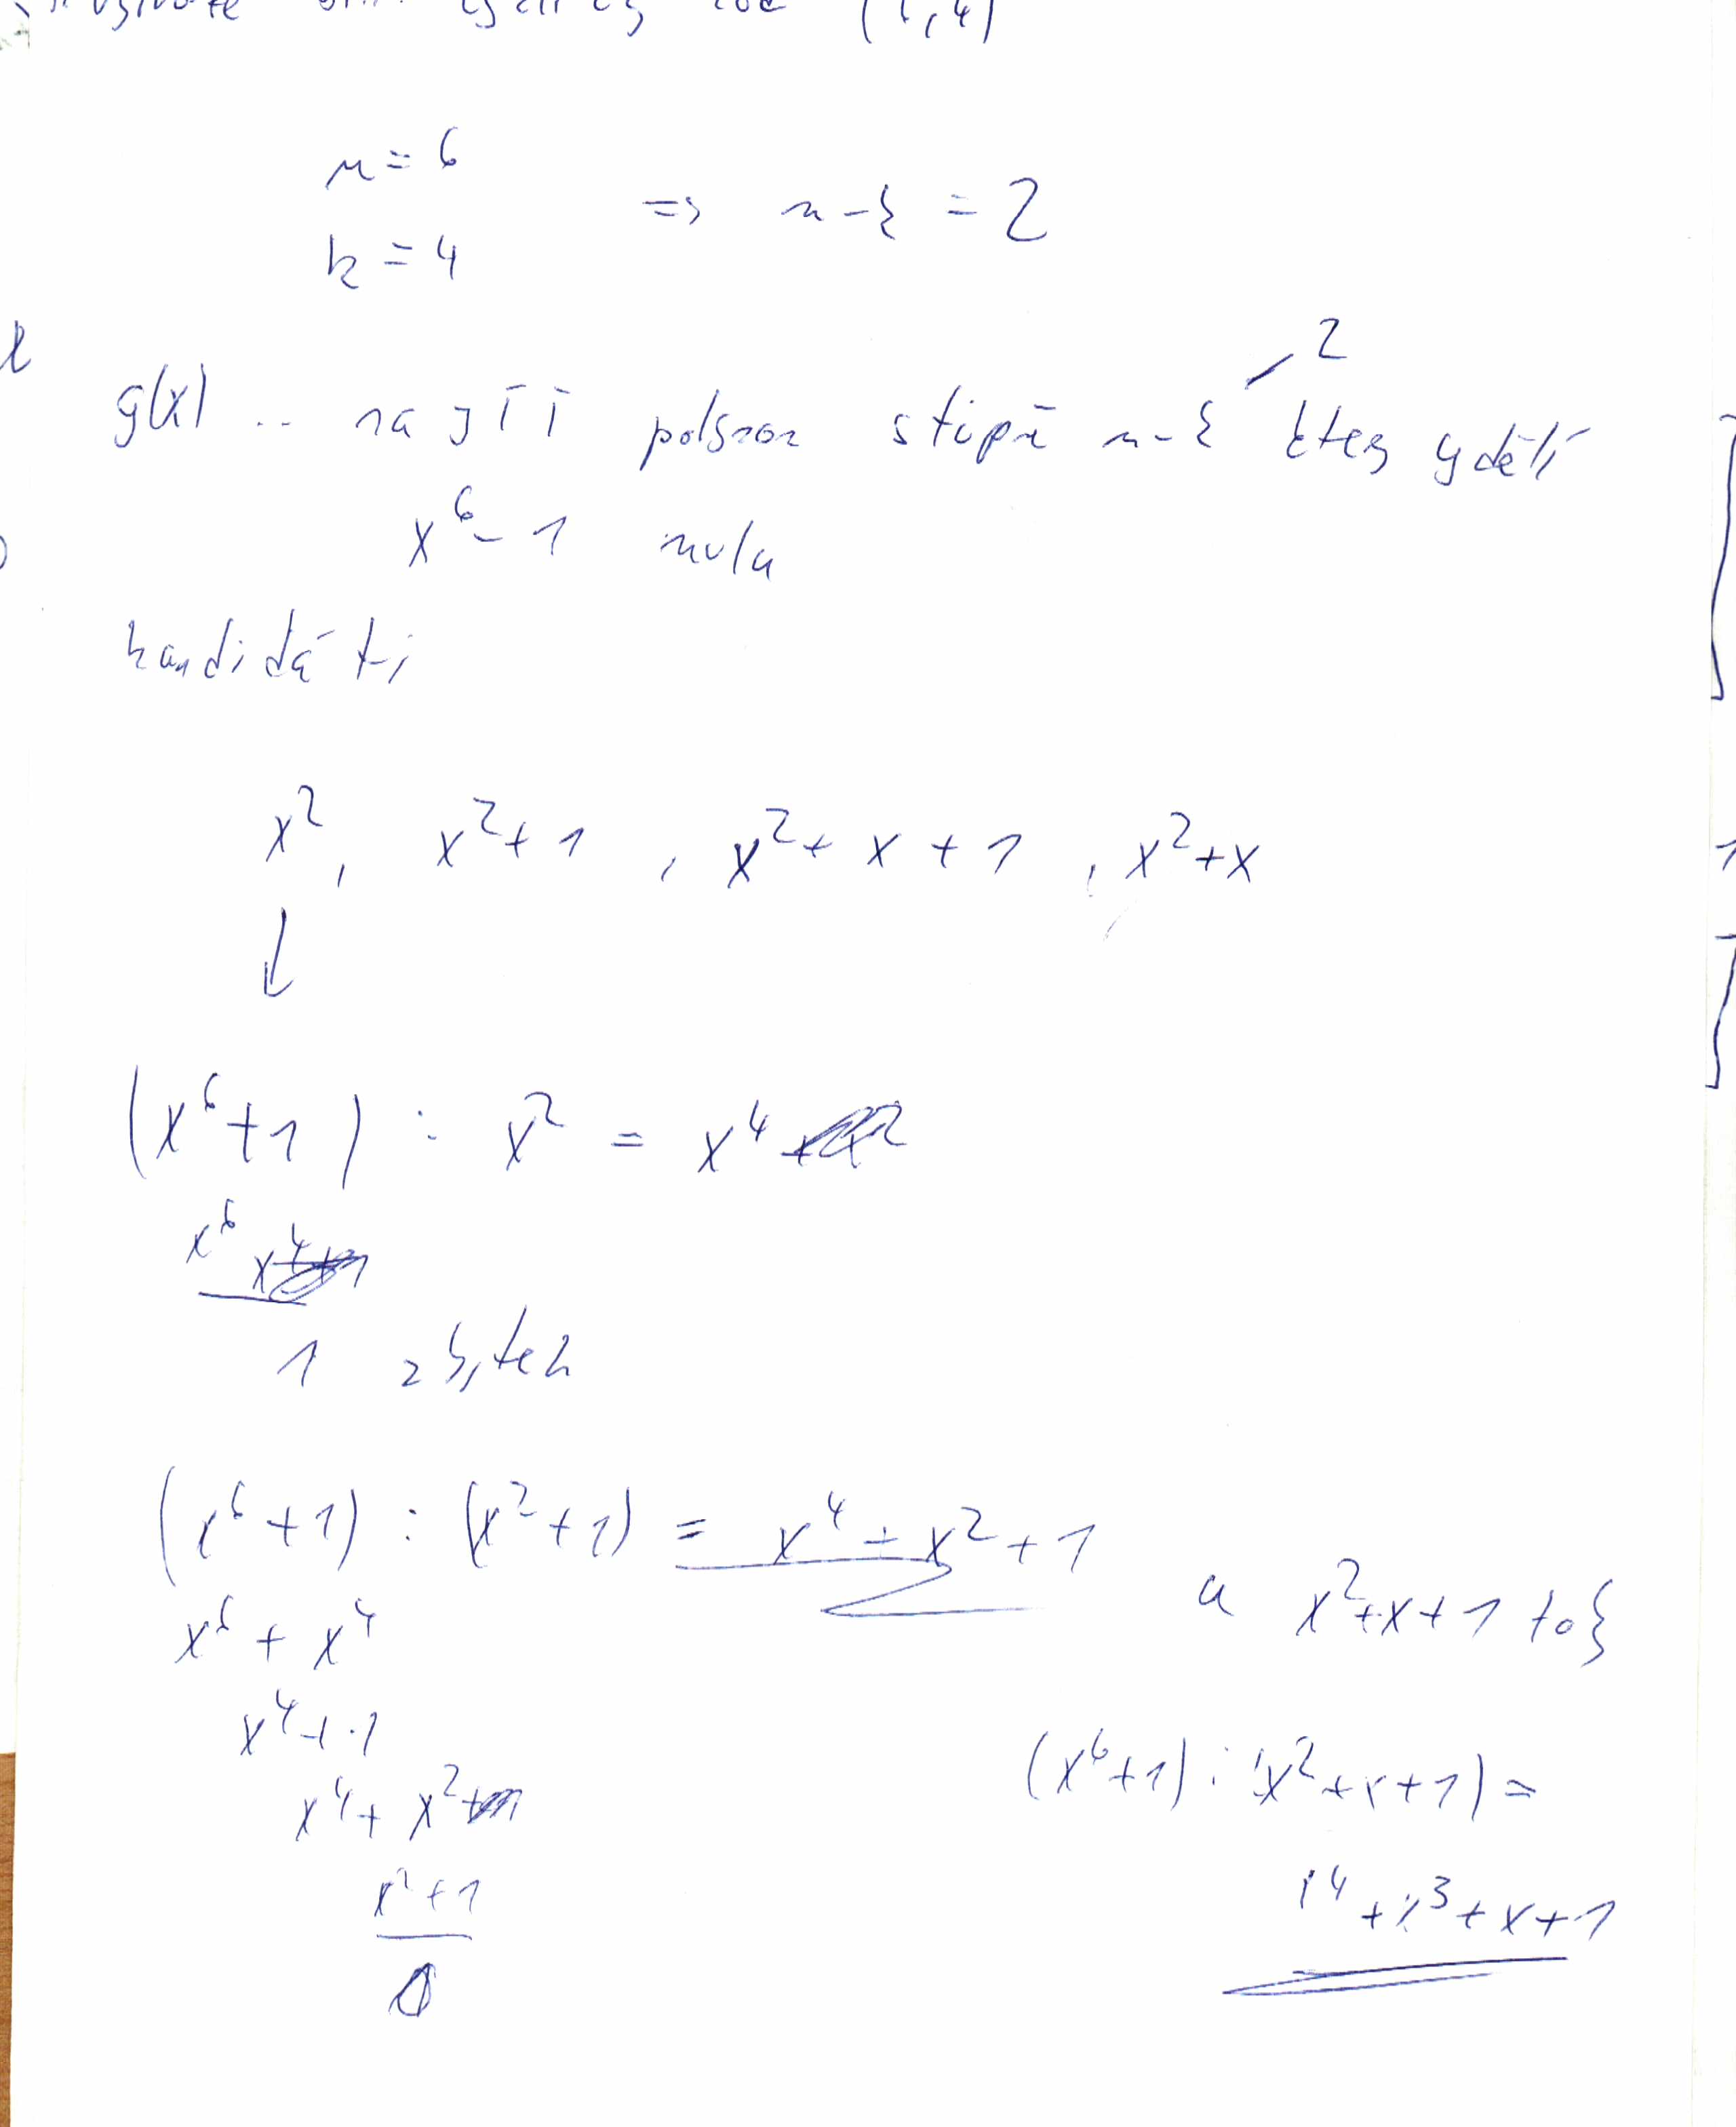 kód (6,4)
n = 6
k = 4
=> n-k = 2
2
g(x) .. najít polynom stupně n-k který dělí
x^6 - 1 nula
kandidáti
x^2, x^2+1, x^2+x+1, x^2+x
↓
(x^6+1) : x^2 = x^4
x^6
1 zbytek
(x^6+1) : (x^2+1) = x^4 + x^2 + 1
x^6 + x^4
x^4 + 1
x^4 + x^2
x^2+1
0
a x^2+x+1 též
(x^6+1) : (x^2+x+1) =
x^4 + x^3 + x + 1